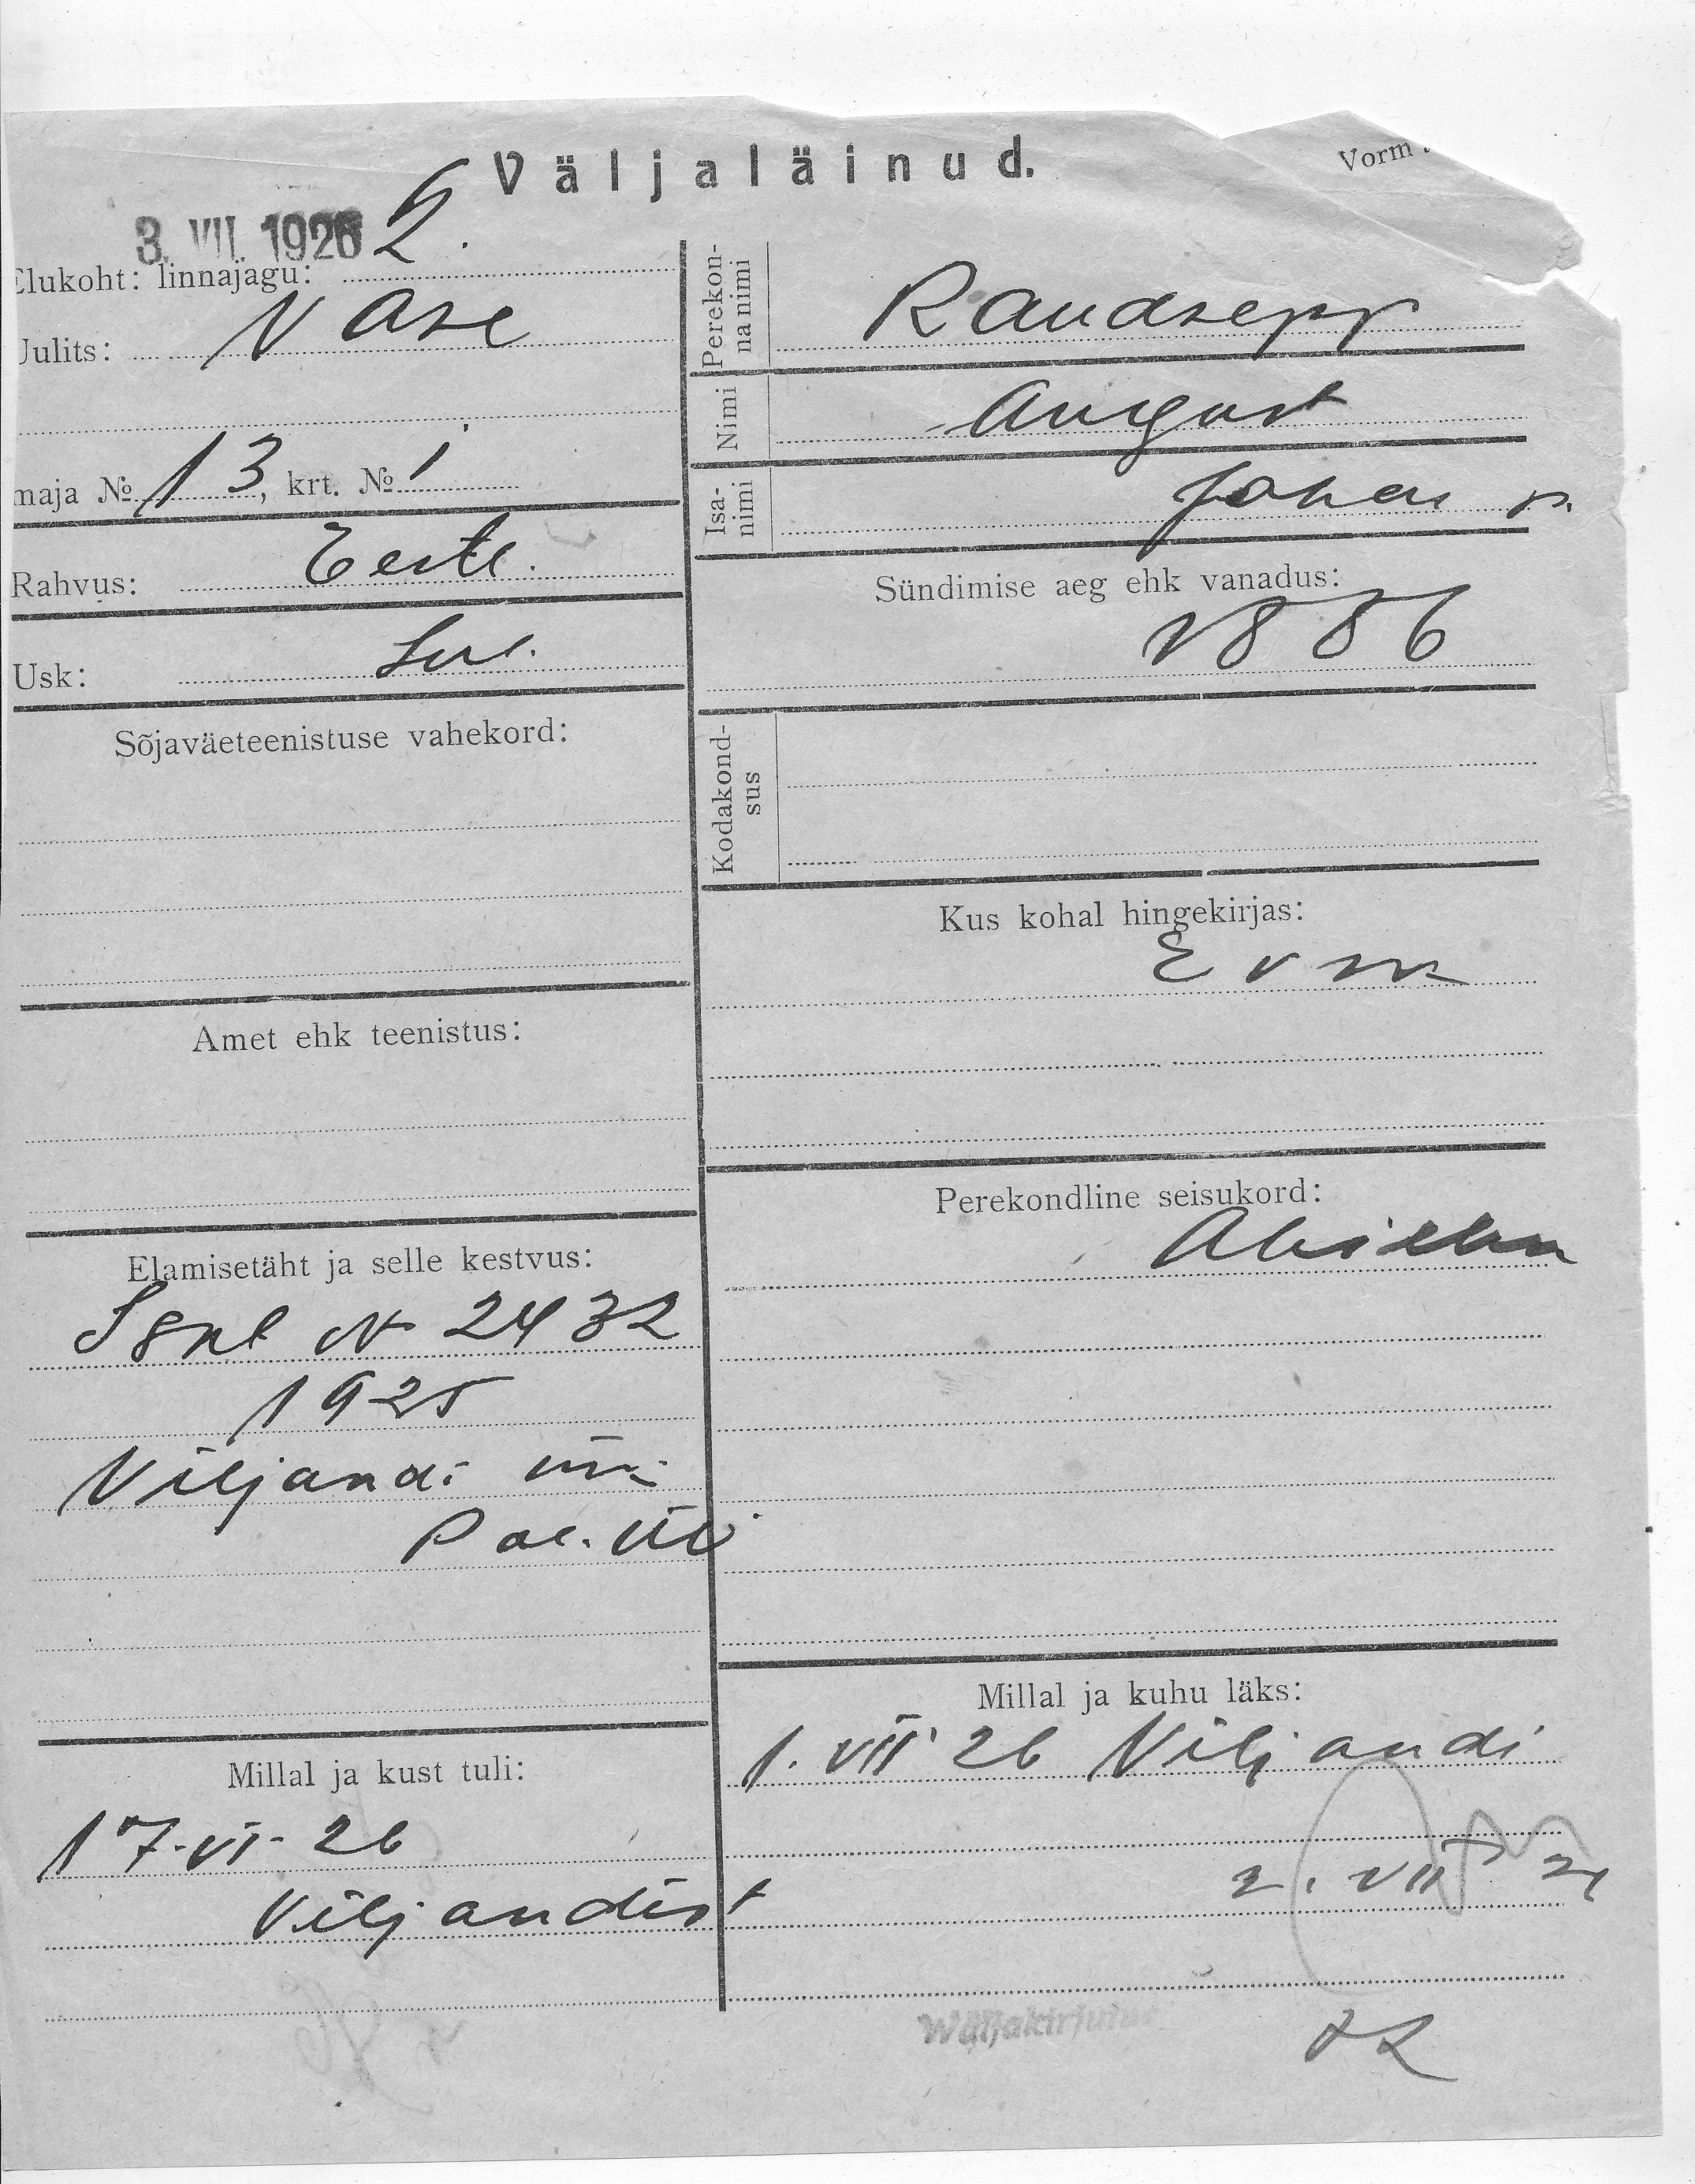 Väljaläinud.
Vorm
3. VII. 1926
Elukoht: linnajagu: 2.
Uulits: Vase
maja № 13, krt. № 1
Rahvus: Eesti.
Usk: Lut.
Sõjaväeteenistuse vahekord:
Amet ehk teenistus:
Elamisetäht ja selle kestvus:
N 2432
1925
Viljandi
Pol.
Millal ja kust tuli:
17-VI-26
Viljandist
Perekonna nimi Raudsepp
Nimi August
Isanimi Johan p.
Sündimise aeg ehk vanadus:
1886
Kodakondsus
Kus kohal hingekirjas:
Perekondline seisukord:
Abielu
Millal ja kuhu läks:
1. VII 26 Viljandi
2. VII
Wäljakirjutud